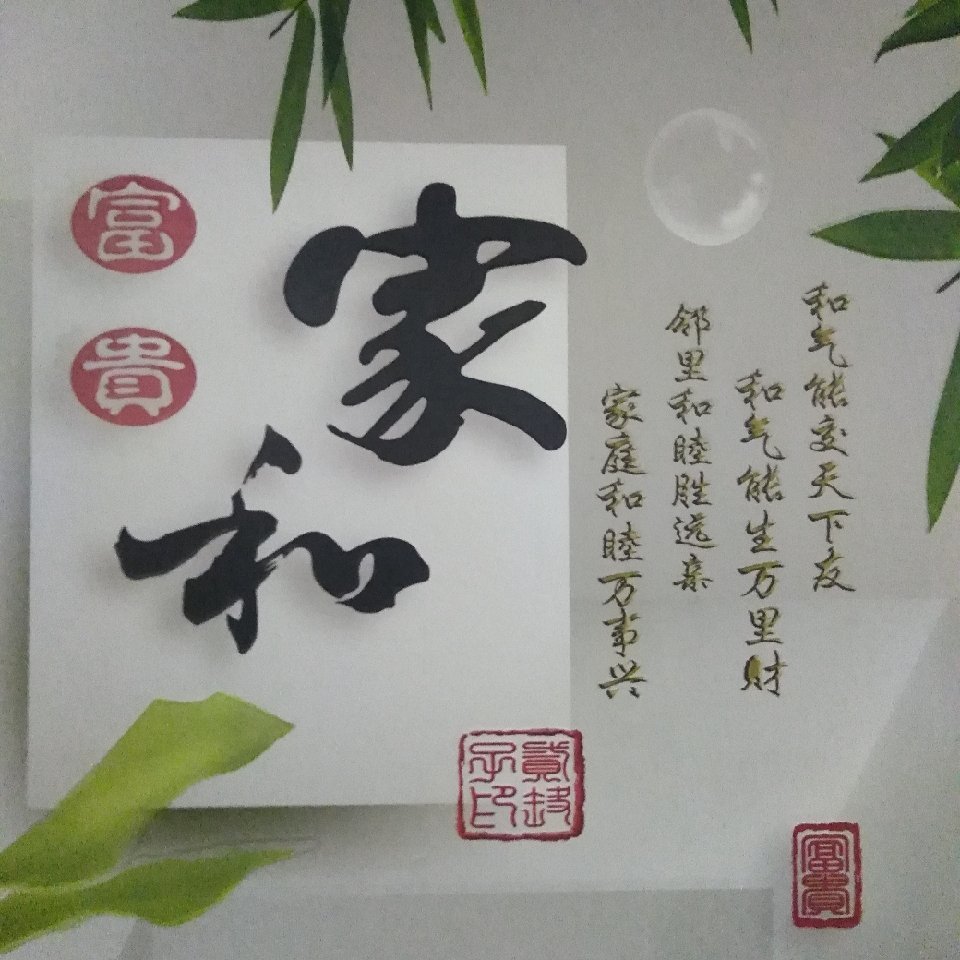 和气能交天下友
和气能生万里财
邻里和睦胜远亲
家庭和睦万事兴
家和
富貴
富貴